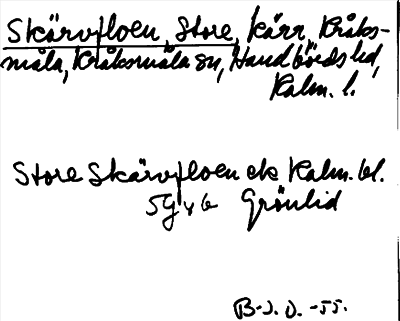 Skärvfloen, Store, kärr, Kråks-
måla, Kråksmåla sn, Handbörds hd,
Kalm. l.
Store Skärvfloen ek Kalm. bl.
5G y b Grönlid
B-J. O. -55.